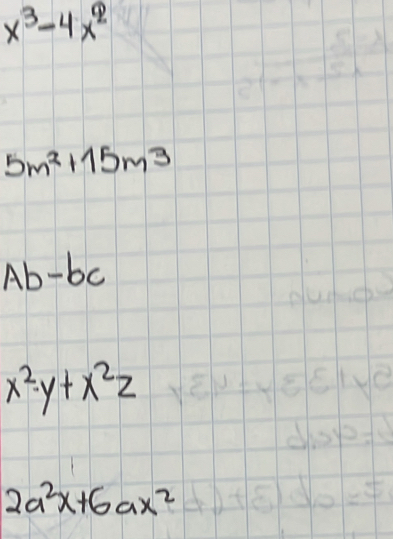 x³-4x²
5m²+15m³
Ab-bc
x²·y+x²z
2a²x+6ax²